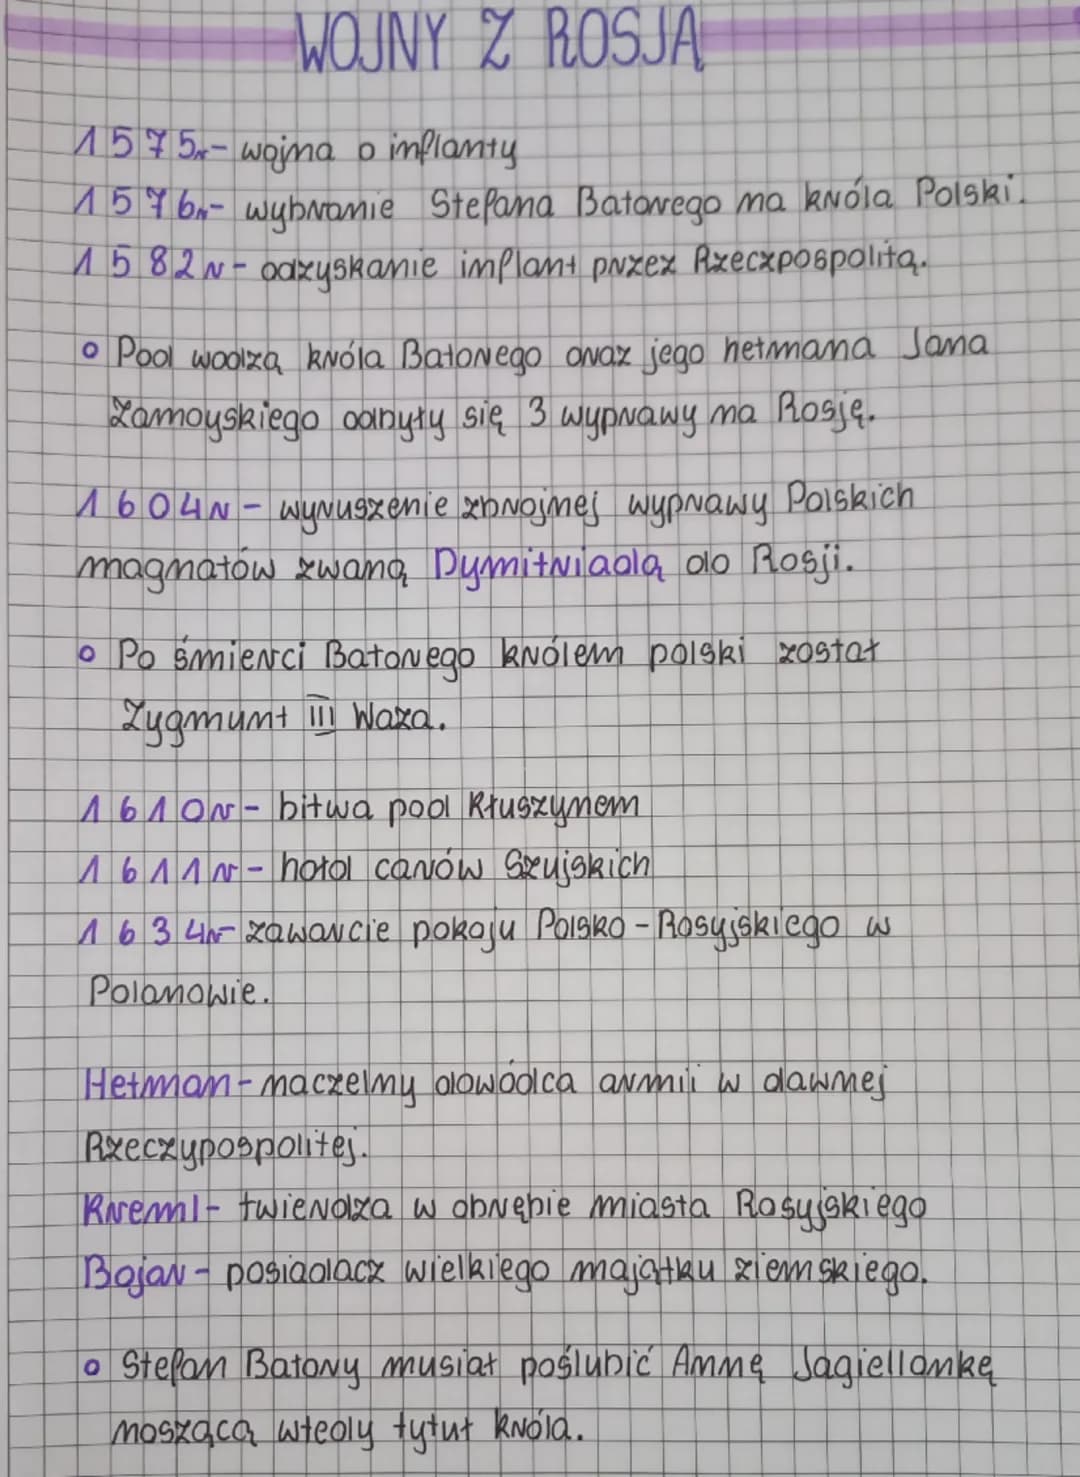 WOJNY Z ROSJĄ
1575r- wojna o inflanty
1576r- wybranie Stefana Batorego na króla Polski.
1582r- odzyskanie inflant przez Rzeczpospolitą.
o Pod wodzą króla Batorego oraz jego hetmana Jana
Zamoyskiego odbyły się 3 wyprawy na Rosję.
1604r- wyruszenie zbrojnej wyprawy Polskich
magnatów zwaną Dymitriadą do Rosji.
o Po śmierci Batorego królem polski został
Zygmunt III Waza.
1610r- bitwa pod Kłuszynem
1611r- hołd carów Szujskich
1634r- zawarcie pokoju Polsko-Rosyjskiego w
Polanowie.
Hetman- naczelny dowódca armii w dawnej
Rzeczypospolitej.
Kreml- twierdza w obrębie miasta Rosyjskiego
Bojar- posiadacz wielkiego majątku ziemskiego.
o Stefan Batory musiał poślubić Annę Jagiellonkę
noszącą wtedy tytuł króla.